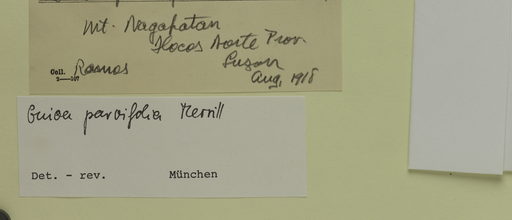 Mt. Nagapatan
Ilocos Norte Prov.
Luzon
Coll. Ramos
2—107
Aug, 1918
Guioa parvifolia Merrill
Det. - rev. München